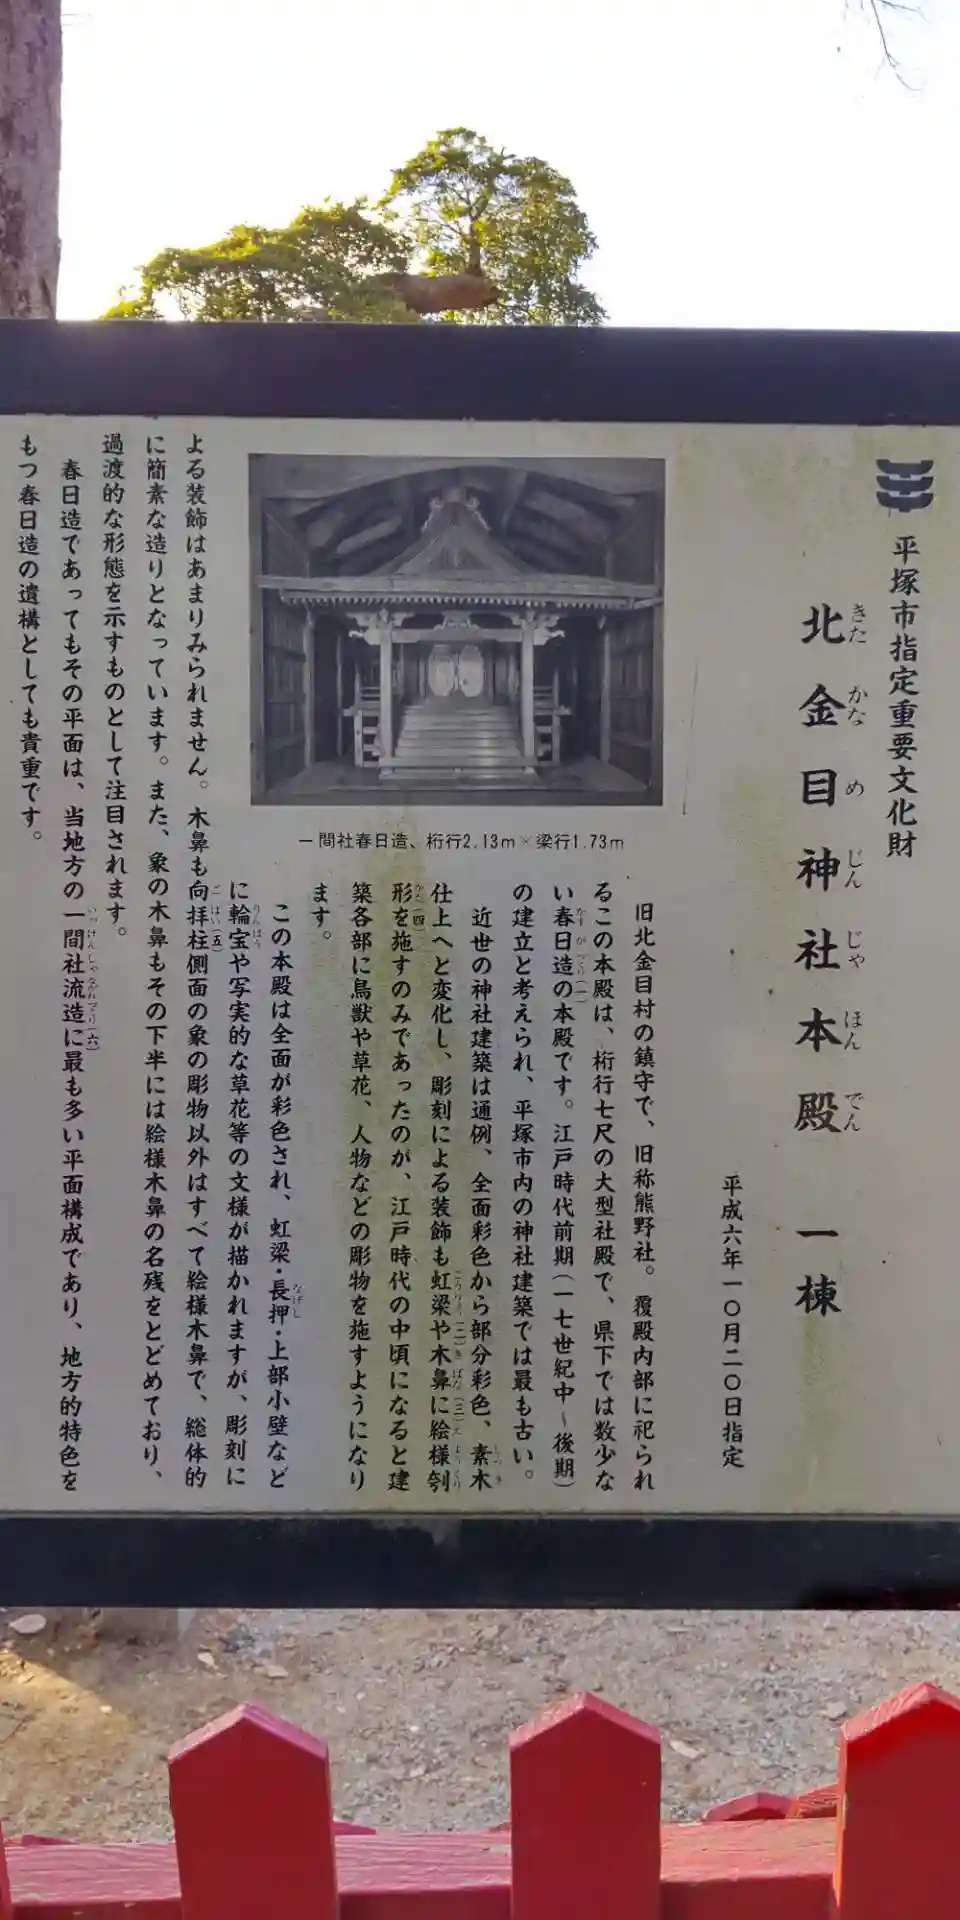 平塚市指定重要文化財
北金目神社本殿 一棟
きた かな め じん じゃ ほん でん
平成六年一〇月二〇日指定
一間社春日造、桁行2.13m×梁行1.73m
旧北金目村の鎮守で、旧称熊野社。覆殿内部に祀られ
るこの本殿は、桁行七尺の大型社殿で、県下では数少な
い春日造(一)の本殿です。江戸時代前期(一七世紀中〜後期)
の建立と考えられ、平塚市内の神社建築では最も古い。
近世の神社建築は通例、全面彩色から部分彩色、素木
仕上へと変化し、彫刻による装飾も虹梁(二)や木鼻(三)に絵様刳
形(四)を施すのみであったのが、江戸時代の中頃になると建
築各部に鳥獣や草花、人物などの彫物を施すようになり
ます。
この本殿は全面が彩色され、虹梁・長押・上部小壁など
に輪宝や写実的な草花等の文様が描かれますが、彫刻に
よる装飾はあまりみられません。木鼻も向拝柱(五)側面の象の彫物以外はすべて絵様木鼻で、総体的
に簡素な造りとなっています。また、象の木鼻もその下半には絵様木鼻の名残をとどめており、
過渡的な形態を示すものとして注目されます。
春日造であってもその平面は、当地方の一間社流造(六)に最も多い平面構成であり、地方的特色を
もつ春日造の遺構としても貴重です。